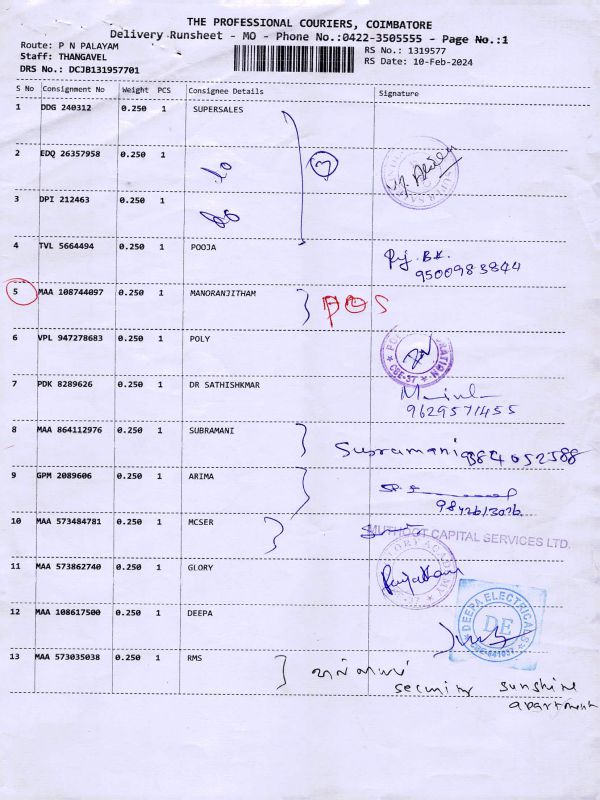 THE PROFESSIONAL COURIERS, COIMBATORE
Delivery Runsheet - MO - Phone No.:0422-3505555 - Page No.:1
Route: P N PALAYAM
RS No.: 1319577
Staff: THANGAVEL
RS Date: 10-Feb-2024
DRS No.: DCJB131957701
S No Consignment No Weight PCS Consignee Details Signature
1 DDG 240312 0.250 1 SUPERSALES
2 EDQ 26357958 0.250 1
3 DPI 212463 0.250 1
4 TVL 5664494 0.250 1 POOJA
9500983844
5 MAA 108744097 0.250 1 MANORANJITHAM
6 VPL 947278683 0.250 1 POLY
CBE-37
7 PDK 8289626 0.250 1 DR SATHISHKMAR
9629571455
8 MAA 864112976 0.250 1 SUBRAMANI
Supramani 9884052588
9 GPM 2089606 0.250 1 ARIMA
9842613026
10 MAA 573484781 0.250 1 MCSER
MUTHOOT CAPITAL SERVICES LTD.
11 MAA 573862740 0.250 1 GLORY
GLORY ACADEMY
12 MAA 108617500 0.250 1 DEEPA
DEEPA ELECTRICALS
DE
13 MAA 573035038 0.250 1 RMS
security sunshine
apartment